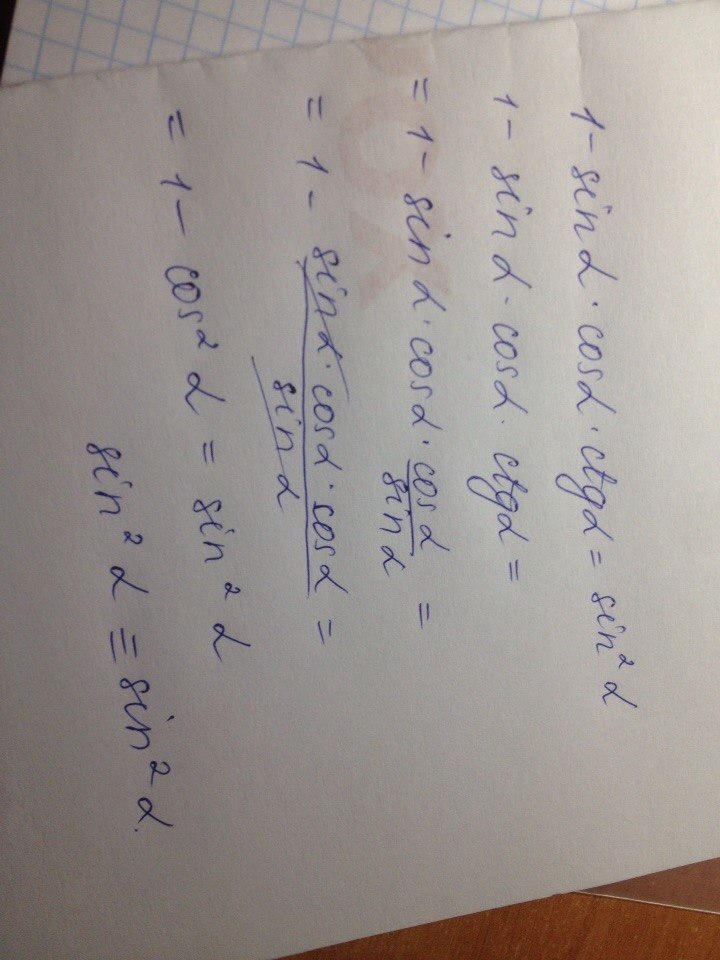 1 - sin α · cos α · ctg α = sin² α
1 - sin α · cos α · ctg α =
= 1 - sin α · cos α · cos α / sin α =
= 1 - sin α · cos α · cos α / sin α =
= 1 - cos² α = sin² α
sin² α ≡ sin² α.